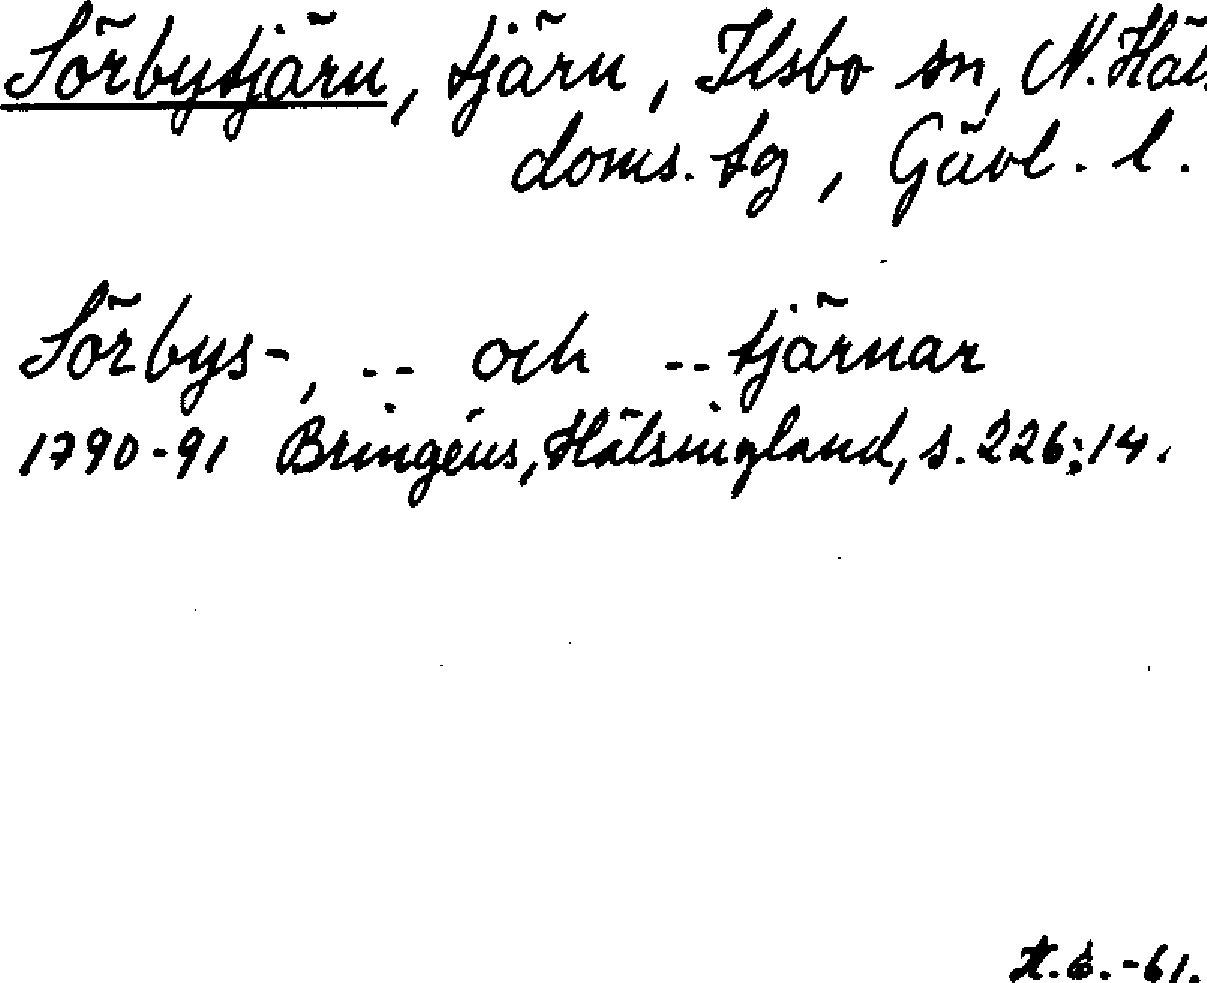 Sörbytjärn, tjärn, Ilsbo sn, N. Häls.
doms. tg, Gävl. l.
Sörbys-, -- och -- tjärnar
1790-91 Bringéus, Hälsingland, s. 226; 14.
-61.